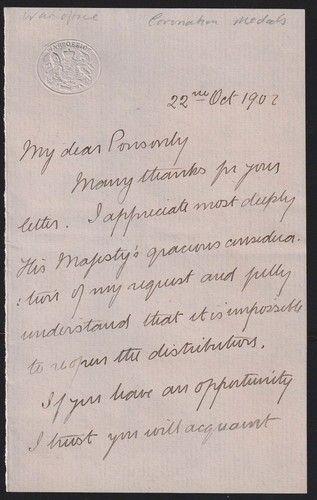 War Office Coronation Medals
WAR OFFICE
22nd Oct 1902
My dear Ponsonby
Many thanks for your
letter. I appreciate most deeply
His Majesty's gracious considera
:tion of my request and fully
understand that it is impossible
to reopen the distribution.
If you have an opportunity
I trust you will acquaint